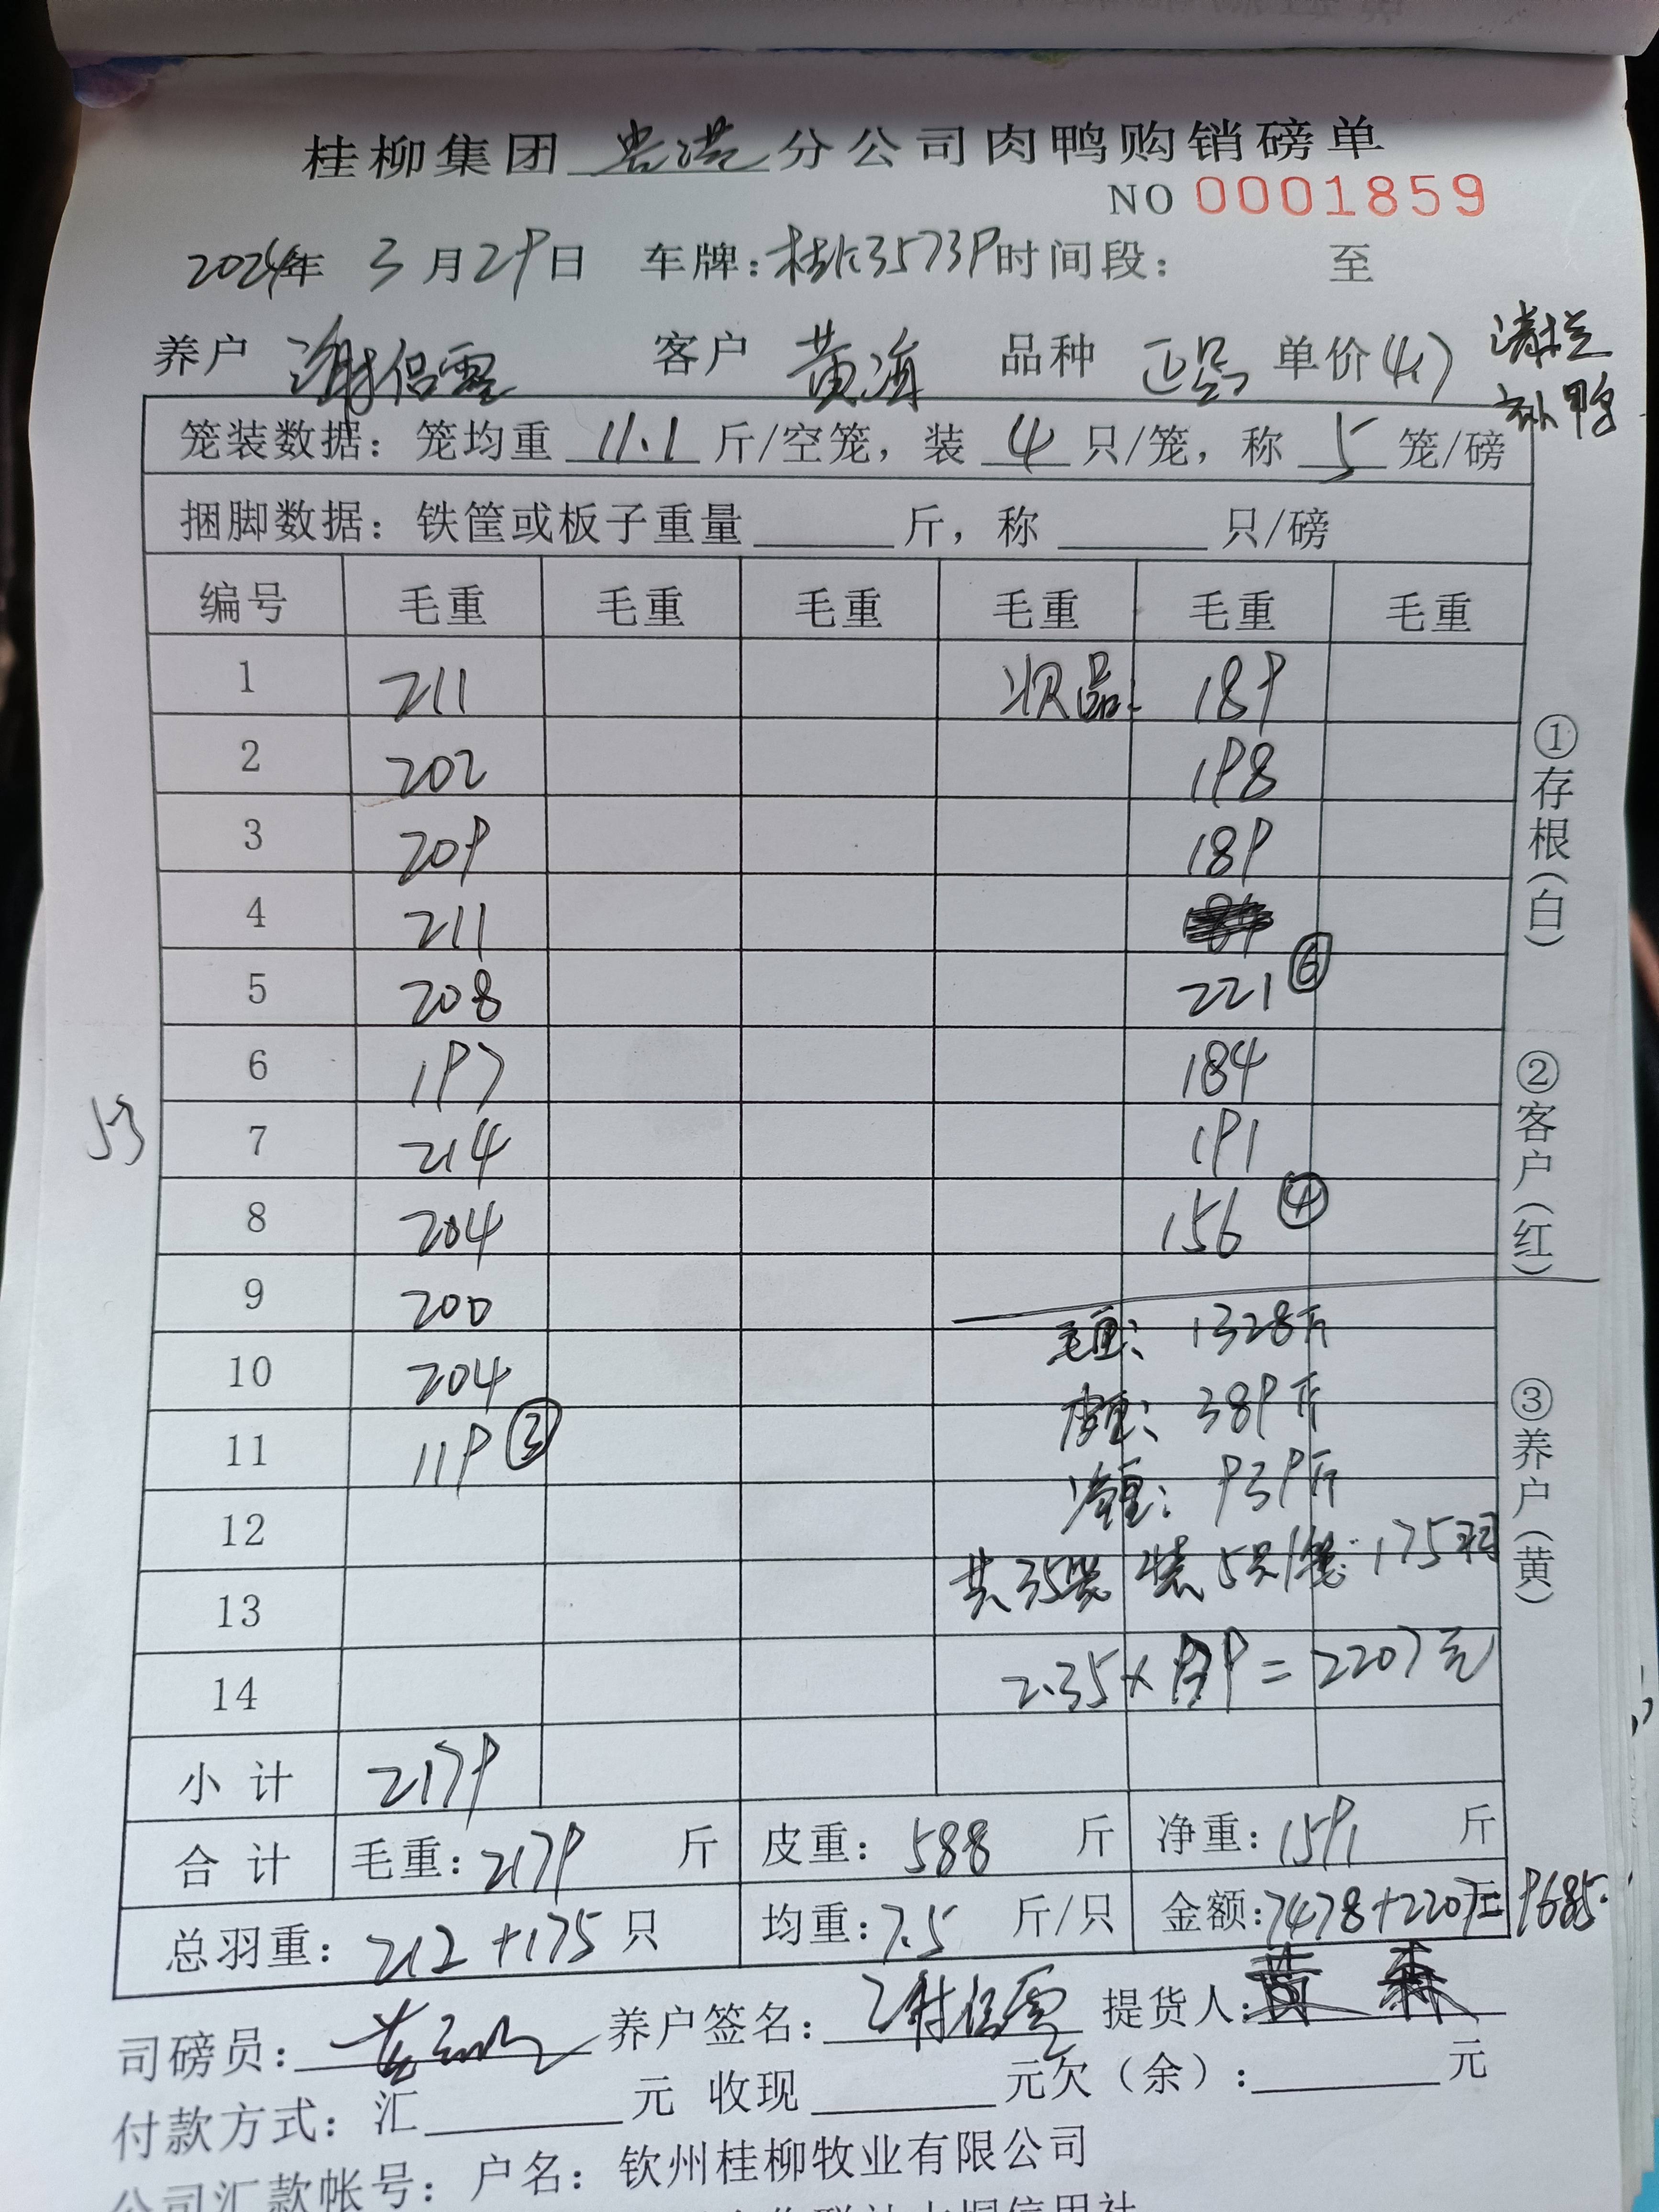 桂柳集团 贵港 分公司肉鸭购销磅单
NO 0001859
2024年 3月29日 车牌:桂K3573P时间段: 至
养户 谢侣雲 客户 黄海 品种 正品 单价(4.7) 清栏
补鸭
笼装数据: 笼均重 11.1 斤/空笼, 装 4 只/笼, 称 5 笼/磅
捆脚数据: 铁筐或板子重量 斤, 称 只/磅
编号 毛重 毛重 毛重 毛重 毛重 毛重
1 211 次品: 189
2 202 198
3 209 189
4 211
5 208 221 ⑥
6 197 184
53
7 214 191
8 204 156 ④
9 200 毛重: 1328斤
10 204 皮重: 389斤
11 119 ③ 净重: 939斤
12 共35笼 装5只/笼: 175羽
13
14 2.35×939=2207元
小计 2179
合计 毛重: 2179 斤 皮重: 588 斤 净重: 1591 斤
总羽重: 212+175 只 均重: 7.5 斤/只 金额: 7478+2207元=9685.
司磅员: 养户签名: 谢侣雲 提货人: 黄森
付款方式: 汇 元 收现 元欠(余): 元
公司汇款帐号: 户名: 钦州桂柳牧业有限公司
①存根(白)
②客户(红)
③养户(黄)